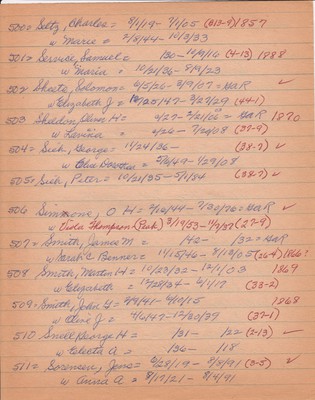 500= Seitz, Charles = 8/1/19- 7/1/05 (613-9) 1857
w Marie = 2/8/44 - 10/3/33
501= Service, Samuel = /30- 10/9/16 (4-13) 1888
w Maria = 10/21/36 - 8/9/23
502 Sheets, Solomon = 6/5/26- 3/9/07 = GAR ✓
w Elizabeth J = /47- 3/27/29 (44-1)
503 Sheldon, H = 4/27- 2/21/05 = GAR 1870
w Lavinia = 4/26- 7/24/08 (27-9)
504= Sish, George = 11/24/36- (38-7) ✓
w = 2/10/49- 1/27/08
505= Sish, Peter = 10/21/35- 5/1/84 (38-7) ✓
506 Simmons, O H = 2/16/44- 7/30/26= GAR ✓
w Viola Thompson (Peak) 3/19/53- 11/9/37 (27-9)
507= Smith, James M = /42- /32= GAR
w Sarah C Benner= 11/15/46- 8/12/05 (26-4) 1866?
508 Smith, Martin H = 10/23/32- 12/1/03 1869
w Elizabeth = 12/28/34- 4/1/17 (33-2)
509= Smith, John G = 2/9/41- 4/10/15 1868
w Olive J = 4/6/47- 12/30/39 (37-1)
510 Snell George H = /31- /22 (2-13) ✓
w Electa A = /36- /18
511= Sorensen, Jens= 2/28/19- 8/8/91 (3-5) ✓
w Anna A = 8/17/21- 8/9/91